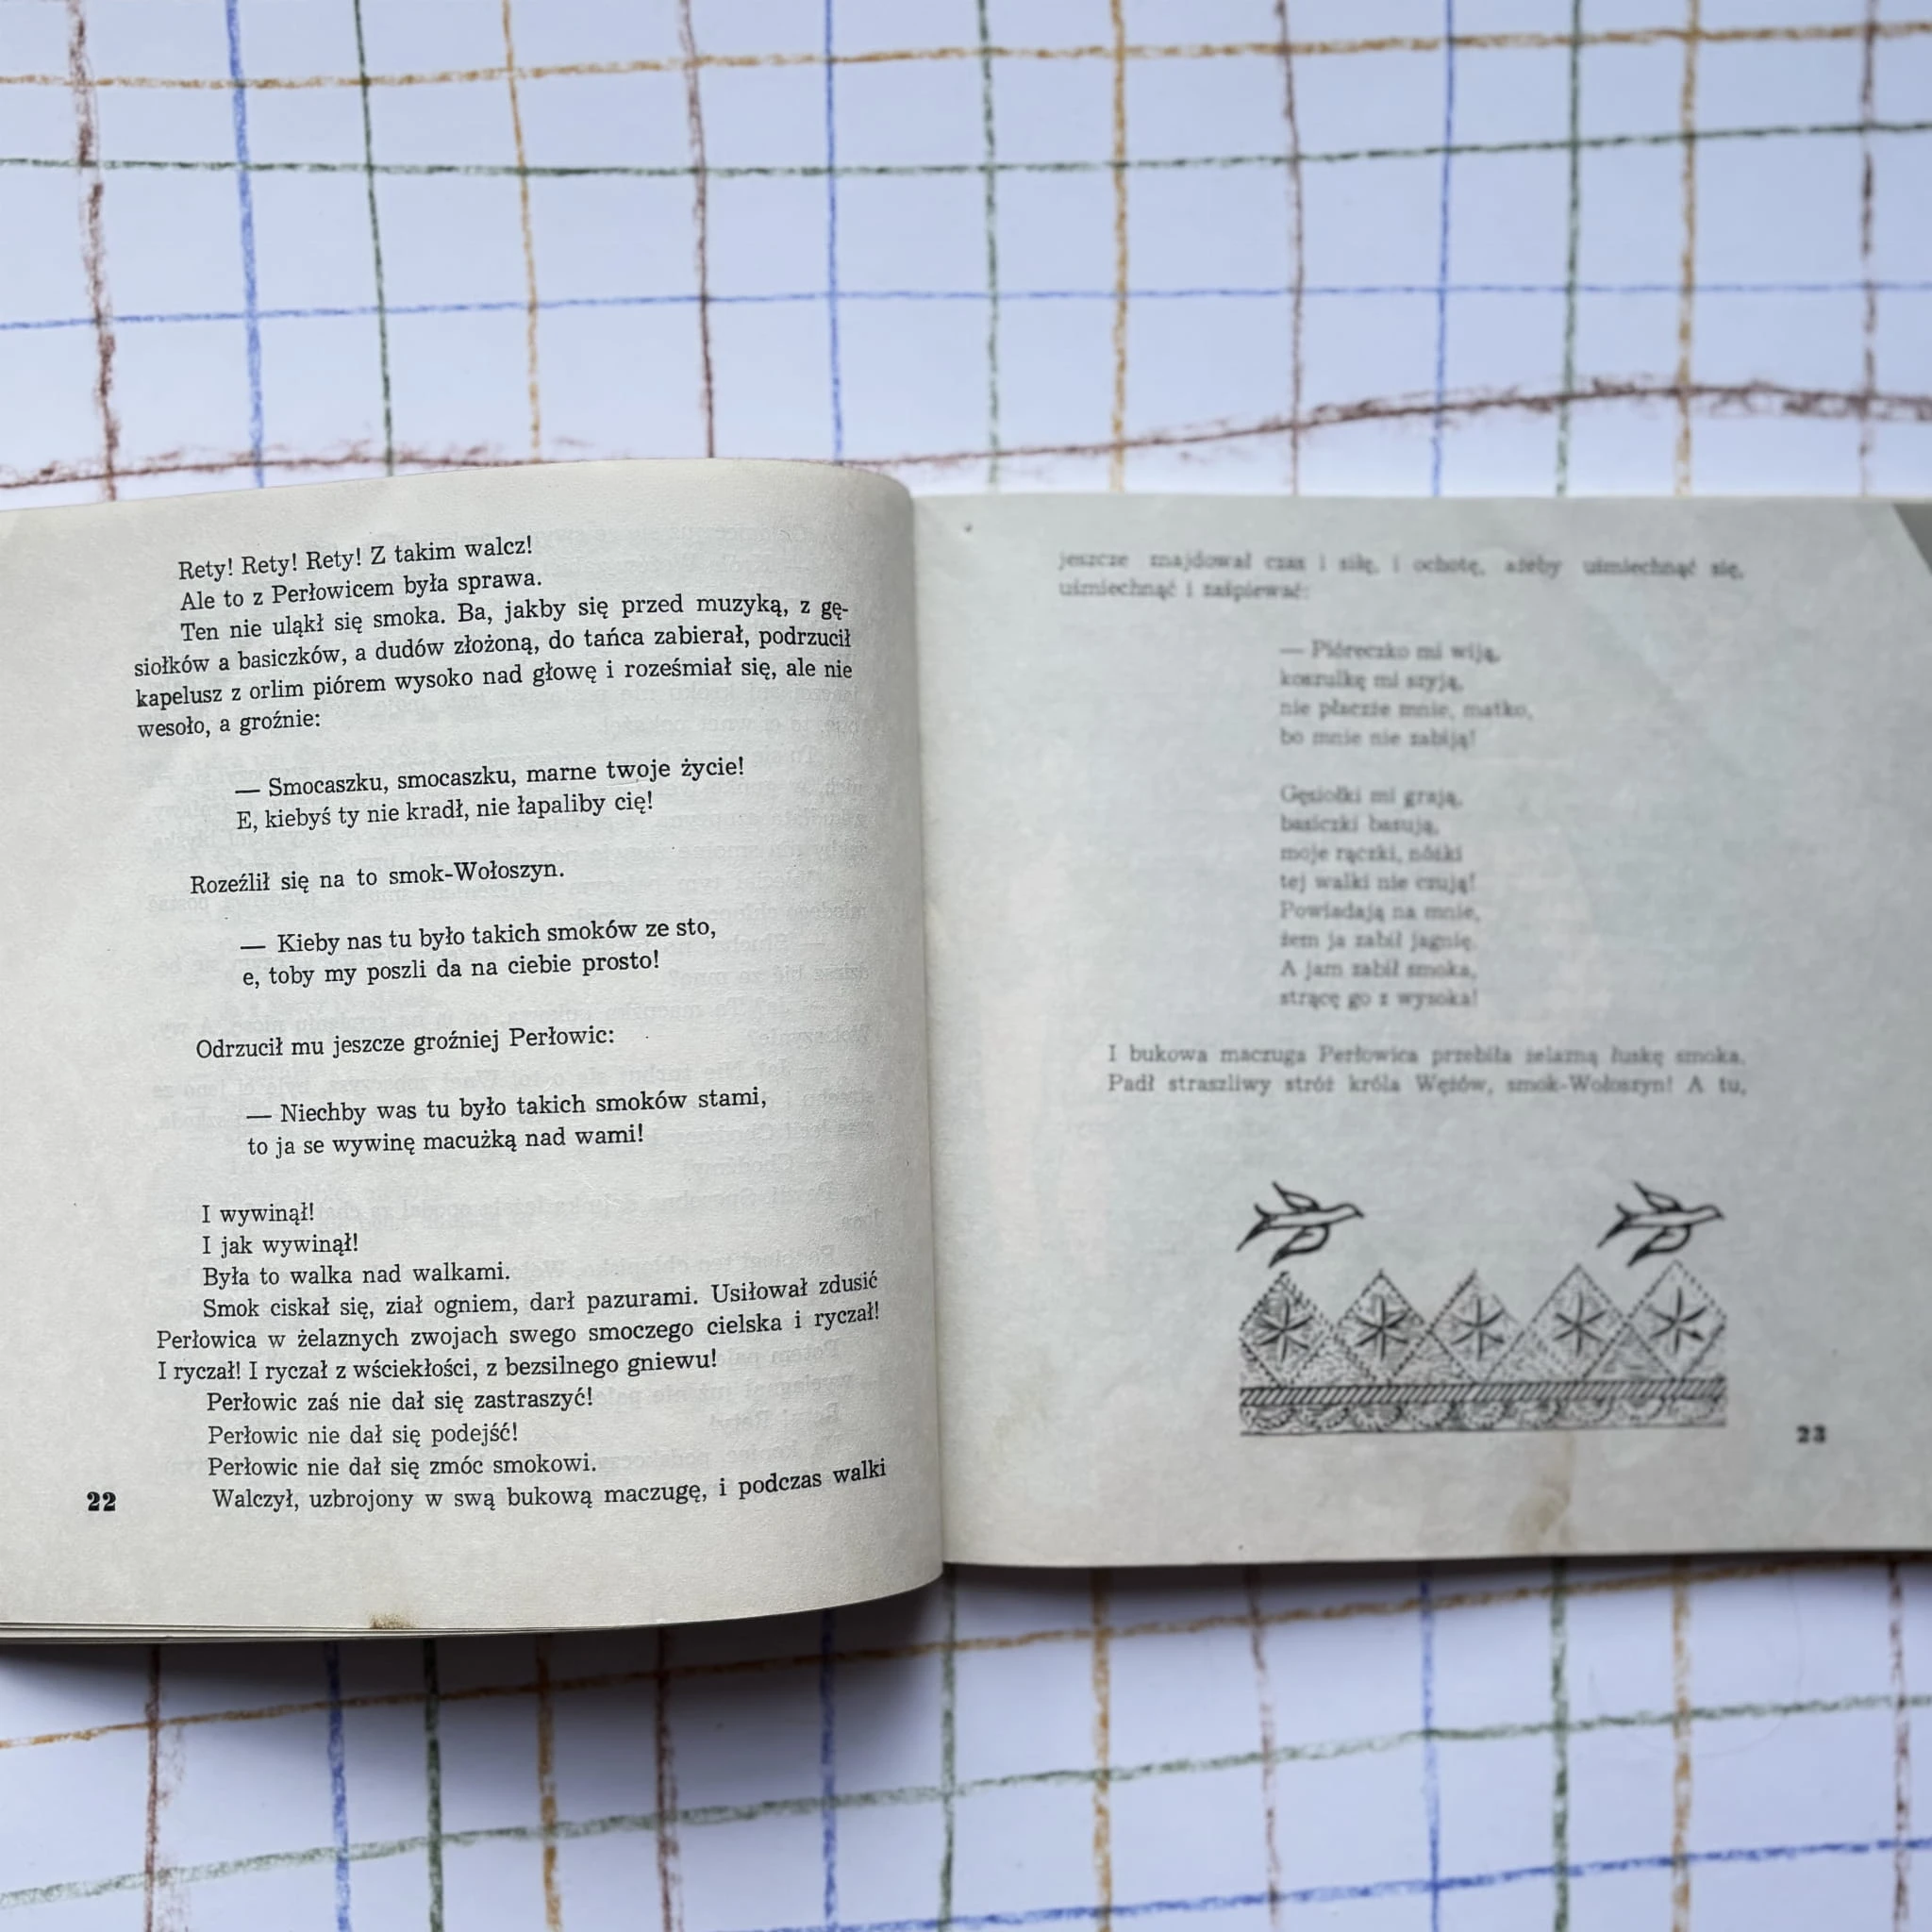 Rety! Rety! Rety! Z takim walcz!
Ale to z Perłowicem była sprawa.
Ten nie uląkł się smoka. Ba, jakby się przed muzyką, z gę-
siołków a basiczków, a dudów złożoną, do tańca zabierał, podrzucił
kapelusz z orlim piórem wysoko nad głowę i roześmiał się, ale nie
wesoło, a groźnie:
— Smocaszku, smocaszku, marne twoje życie!
E, kiebyś ty nie kradł, nie łapaliby cię!
Rozeźlił się na to smok-Wołoszyn.
— Kieby nas tu było takich smoków ze sto,
e, toby my poszli da na ciebie prosto!
Odrzucił mu jeszcze groźniej Perłowic:
— Niechby was tu było takich smoków stami,
to ja se wywinę macużką nad wami!
I wywinął!
I jak wywinął!
Była to walka nad walkami.
Smok ciskał się, ział ogniem, darł pazurami. Usiłował zdusić
Perłowica w żelaznych zwojach swego smoczego cielska i ryczał!
I ryczał! I ryczał z wściekłości, z bezsilnego gniewu!
Perłowic zaś nie dał się zastraszyć!
Perłowic nie dał się podejść!
Perłowic nie dał się zmóc smokowi.
Walczył, uzbrojony w swą bukową maczugę, i podczas walki
22
jeszcze znajdował czas i siłę, i ochotę, ażeby uśmiechnąć się,
uśmiechnąć i zaśpiewać:
— Pióreczko mi wiją,
koszulkę mi szyją,
nie płaczże mnie, matko,
bo mnie nie zabiją!
Gęsiołki mi grają,
basiczki basują,
moje rączki, nóżki
tej walki nie czują!
Powiadają na mnie,
żem ja zabił jagnię.
A jam zabił smoka,
strącę go z wysoka!
I bukowa maczuga Perłowica przebiła żelazną łuskę smoka.
Padł straszliwy stróż króla Wężów, smok-Wołoszyn! A tu,
23